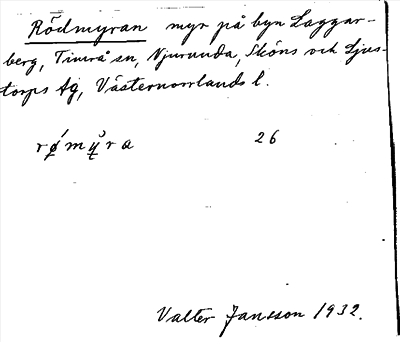 Rödmyran myr på byn Laggar-
berg, Timrå sn, Njurunda, Sköns och Ljus-
torps tg, Västernorrlands l.
rǿmy̆ra 26
Valter Jansson 1932.